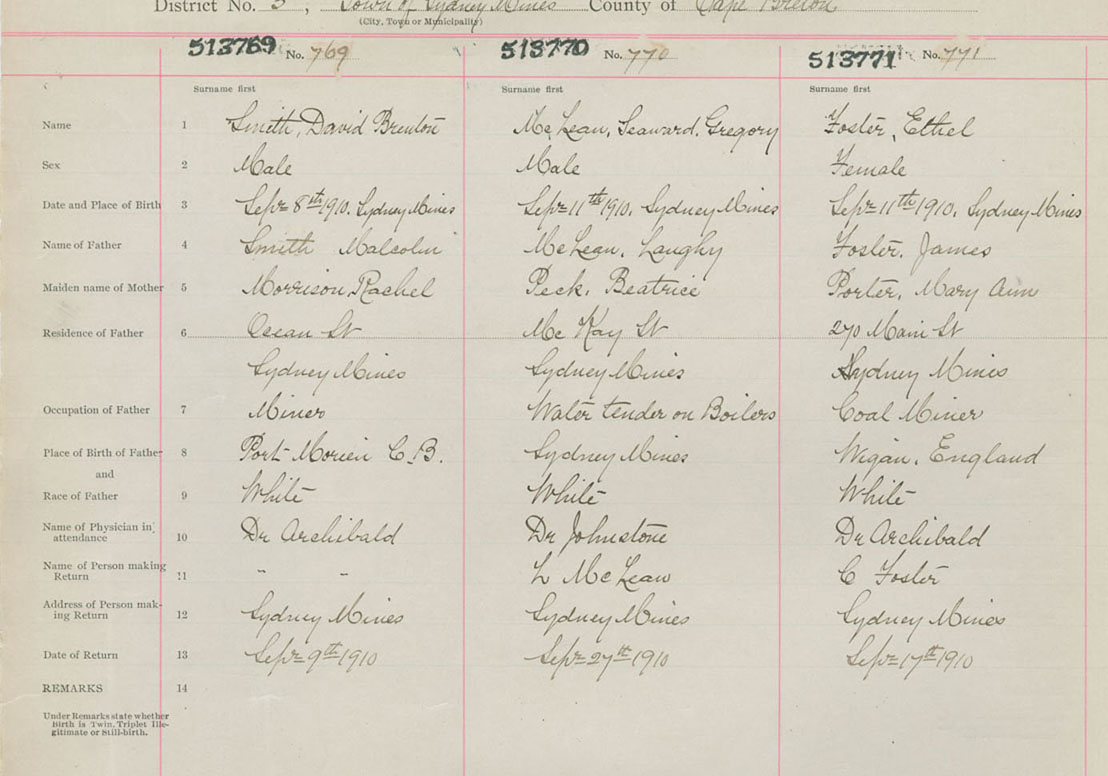 District No. 3, Town of Sydney Mines County of Cape Breton
(City, Town or Municipality)
513769 No. 769 513770 No. 770 513771 No. 771
Surname first Surname first Surname first
Name 1 Smith, David Brenton McLean, Seaward, Gregory Foster, Ethel
Sex 2 Male Male Female
Date and Place of Birth 3 Sepr 8th 1910. Sydney Mines Sepr 11th 1910. Sydney Mines Sepr 11th 1910. Sydney Mines
Name of Father 4 Smith Malcolm McLean, Laughy Foster. James
Maiden name of Mother 5 Morrison, Rachel Peck, Beatrice Porter, Mary Ann
Residence of Father 6 Ocean St Mc Kay St 270 Main St
Sydney Mines Sydney Mines Sydney Mines
Occupation of Father 7 Miner Water tender on Boilers Coal Miner
Place of Birth of Father 8 Port Morien C.B. Sydney Mines Wigan, England
and
Race of Father 9 White White White
Name of Physician in attendance 10 Dr Archibald Dr Johnstone Dr Archibald
Name of Person making Return 11 " " L McLean C Foster
Address of Person making Return 12 Sydney Mines Sydney Mines Sydney Mines
Date of Return 13 Sepr 9th 1910 Sepr 27th 1910 Sepr 17th 1910
REMARKS 14
Under Remarks state whether
Birth is Twin, Triplet Ille-
gitimate or Still-birth.